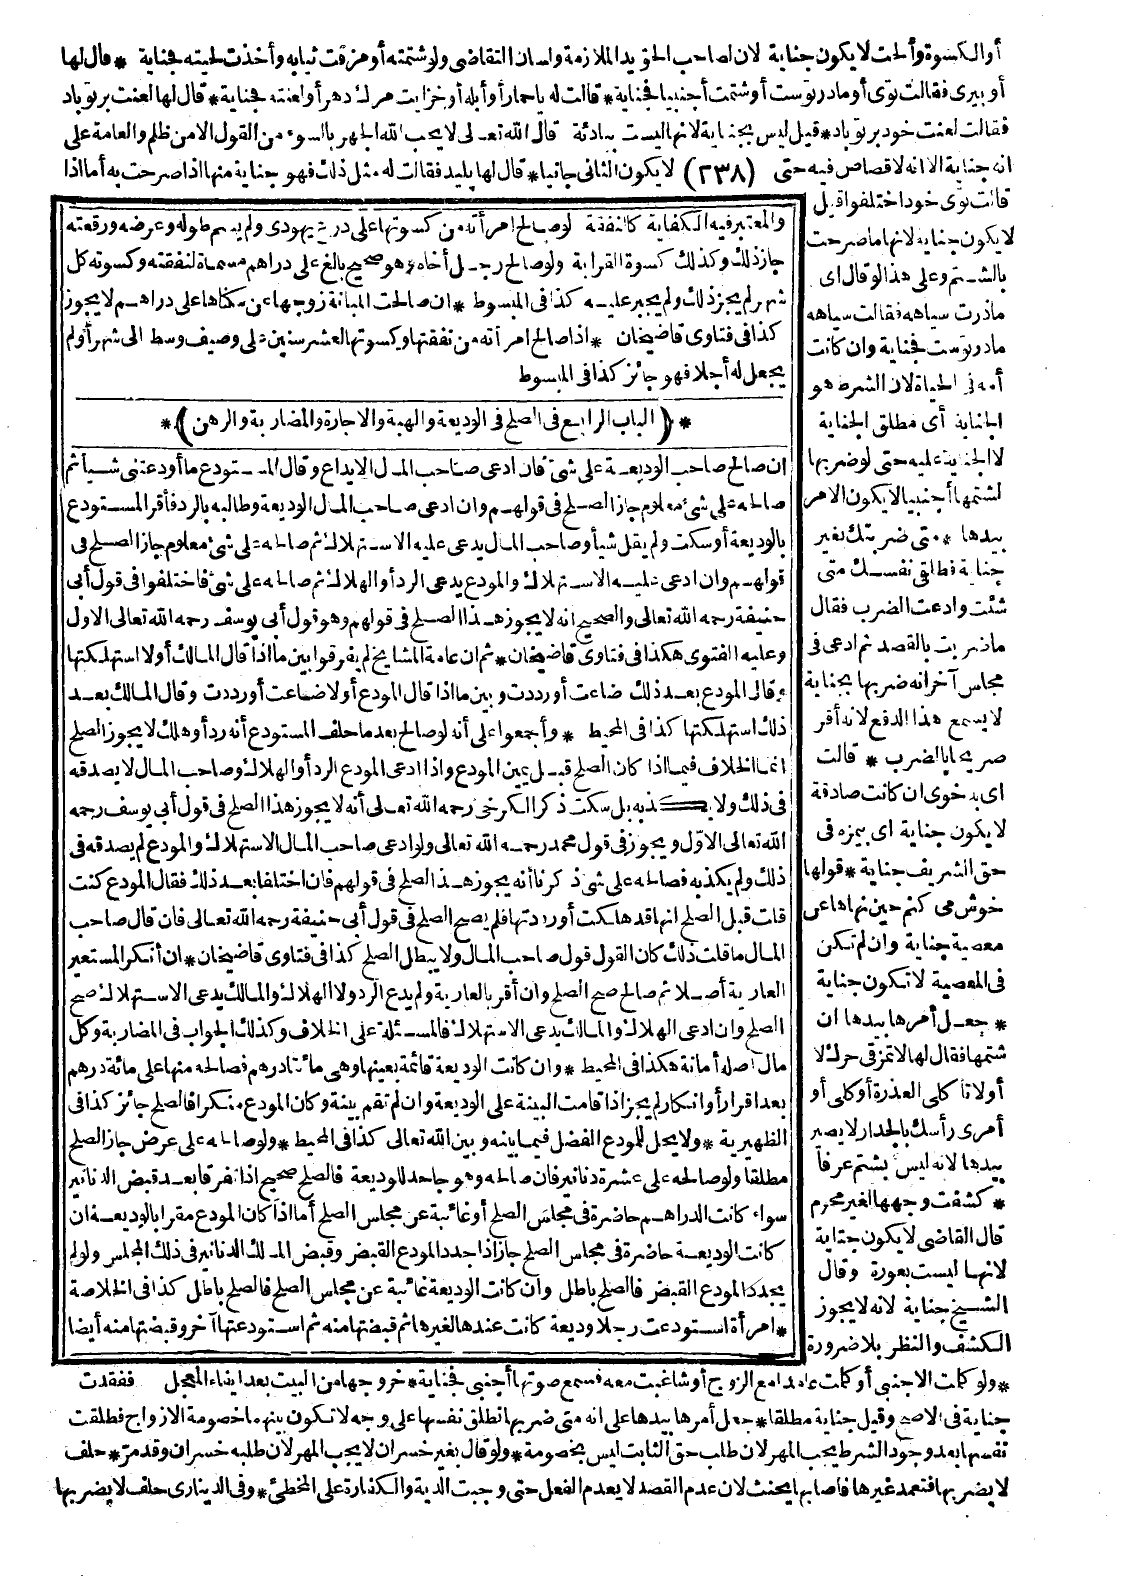 أو الكسوة وألحت لا يكون جناية لان لصاحب الحق يد الملازمة ولسان التقاضى ولو شتمته أو مزقت ثيابه وأخذت لحيته فجناية * قال لها
أو بيرى فقالت توى أو مادر توست أو شتمت أجنبيا فجناية * قالت له يا حمار أو أبله أو خزايت مرك دهر أو لعنته فجناية * قال لها لعنت بر تو باد
فقالت لعنت خود بر تو باد * قيل ليس بجناية لانها ليست ببادئة قال الله تعالى لا يحب الله الجهر بالسوء من القول الا من ظلم والعامة على
انه جناية الا انه لا قصاص فيه حتى (٢٣٨) لا يكون الثانى جانيا * قال لها پليد فقالت له مثل ذلك فهو جناية منها اذا صرحت به أما اذا
قالت توى خود اختلفوا قيل
لا يكون جناية لانها ما صرحت
بالشتم وعلى هذا لو قال اى
مادرت سياهه فقالت سياهه
مادر توست فجناية وان كانت
أمه فى الحياة لان الشرط هو
الجناية أى مطلق الجناية
لا الجناية عليه حتى لو ضربها
لشتمها أجنبيا لا يكون الامر
بيدها * متى ضربتك بغير
جناية فطلقى نفسك متى
شئت وادعت الضرب فقال
ما ضربت بالقصد ثم ادعى فى
مجلس آخر انه ضربها بجناية
لا يسمع هذا الدفع لانه أقر
صريحا بالضرب * قالت
اى بدخوى ان كانت صادقة
لا يكون جناية اى بيمزه فى
حق الشريف جناية * قولها
خوش مى كنم حين نهاها عن
معصية جناية وان لم تكن
فى المعصية لا تكون جناية
* جعل أمرها بيدها ان
شتمها فقال لها لا تمزقى حرك لا
أو لا تأكلى العذرة أو كلى أو
أمرى رأسك بالجدار لا يصير
بيدها لانه ليس بشتم عرفا
* كشفت وجهها لغير محرم
قال القاضى لا يكون جناية
لانها ليست بعورة وقال
الشيخ جناية لانه لا يجوز
الكشف والنظر بلا ضرورة
والمعتبر فيه الكفاية كالنفقة لو صالح امرأته من كسوتها على درع يهودى ولم يسم طوله وعرضه ورقعته
جاز ذلك وكذلك كسوة القرابة ولو صالح رجل أخاه وهو صحيح بالغ على دراهم مسماة لنفقته وكسوته كل
شهر لم يجز ذلك ولم يجبر عليه كذا فى المبسوط * ان صالحت المبانة زوجها عن سكناها على دراهم لا يجوز
كذا فى فتاوى قاضيخان * اذا صالح امرأته من نفقتها وكسوتها لعشر سنين على وصيف وسط الى شهر أو لم
يجعل له أجلا فهو جائز كذا فى المبسوط
* ( الباب الرابع فى الصلح فى الوديعة والهبة والاجارة والمضاربة والرهن ) *
ان صالح صاحب الوديعة على شئ فان ادعى صاحب المال الايداع وقال المستودع ما أودعتنى شيأ ثم
صالحه على شئ معلوم جاز الصلح فى قولهم وان ادعى صاحب المال الوديعة وطالبه بالرد فأقر المستودع
بالوديعة أو سكت ولم يقل شيأ وصاحب المال يدعى عليه الاستهلاك ثم صالحه على شئ معلوم جاز الصلح فى
قولهم وان ادعى عليه الاستهلاك والمودع يدعى الرد أو الهلاك ثم صالحه على شئ فاختلفوا فى قول أبى
حنيفة رحمه الله تعالى والصحيح انه لا يجوز هذا الصلح فى قولهم وهو قول أبى يوسف رحمه الله تعالى الاول
وعليه الفتوى هكذا فى فتاوى قاضيخان * ثم ان عامة المشايخ لم يفرقوا بين ما اذا قال المالك أولا استهلكتها
وقال المودع بعد ذلك ضاعت أو رددت وبين ما اذا قال المودع أولا ضاعت أو رددت وقال المالك بعد
ذلك استهلكتها كذا فى المحيط * وأجمعوا على أنه لو صالح بعد ما حلف المستودع أنه رد أو هلك لا يجوز الصلح
انما الخلاف فيما اذا كان الصلح قبل يمين المودع واذا ادعى المودع الرد أو الهلاك وصاحب المال لا يصدقه
فى ذلك ولا يكذبه بل سكت ذكر الكرخى رحمه الله تعالى أنه لا يجوز هذا الصلح فى قول أبى يوسف رحمه
الله تعالى الاول ويجوز فى قول محمد رحمه الله تعالى ولو ادعى صاحب المال الاستهلاك والمودع لم يصدقه فى
ذلك ولم يكذبه فصالحه على شئ ذكرنا أنه يجوز هذا الصلح فى قولهم فان اختلفا بعد ذلك فقال المودع كنت
قلت قبل الصلح انها قد هلكت أو رددتها فلم يصح الصلح فى قول أبى حنيفة رحمه الله تعالى فان قال صاحب
المال ما قلت ذلك كان القول قول صاحب المال ولا يبطل الصلح كذا فى فتاوى قاضيخان * ان أنكر المستعير
العارية أصلا ثم صالح صح الصلح وان أقر بالعارية ولم يدع الرد ولا الهلاك والمالك يدعى الاستهلاك صح
الصلح وان ادعى الهلاك والمالك يدعى الاستهلاك فالمسئلة على الخلاف وكذلك الجواب فى المضاربة وكل
مال أصله أمانة هكذا فى المحيط * وان كانت الوديعة قائمة بعينها وهى مائتا درهم فصالحه منها على مائة درهم
بعد اقرار أو انكار لم يجز اذا قامت البينة على الوديعة وان لم تقم بينة وكان المودع منكرا فالصلح جائز كذا فى
الظهيرية * ولا يحل للمودع الفضل فيما بينه وبين الله تعالى كذا فى المحيط * ولو صالحه على عرض جاز الصلح
مطلقا ولو صالحه على عشرة دنانير فان صالحه وهو جاحد للوديعة فالصلح صحيح اذا تفرقا بعد قبض الدنانير
سواء كانت الدراهم حاضرة فى مجلس الصلح أو غائبة عن مجلس الصلح أما اذا كان المودع مقرا بالوديعة ان
كانت الوديعة حاضرة فى مجلس الصلح جاز اذا جدد المودع القبض وقبض المالك الدنانير فى ذلك المجلس ولو لم
يجدد المودع القبض فالصلح باطل وان كانت الوديعة غائبة عن مجلس الصلح فالصلح باطل كذا فى الخلاصة
* امرأة استودعت رجلا وديعة كانت عندها لغيرها ثم قبضتها منه ثم استودعتها آخر وقبضتها منه أيضا
* ولو كلمت الاجنبى أو كلمت عامدا مع الزوج أو شاغبت معه فسمع صوتها أجنبى فجناية * خروجها من البيت بعد ايفاء المعجل ففقدت
جناية فى الاصح وقيل جناية مطلقا * جعل أمرها بيدها على انه متى ضربها تطلق نفسها على وجه لا تكون بينهما خصومة الازواج فطلقت
نفسها بعد وجود الشرط يجب المهر لان طلب حق الثابت ليس بخصومة * ولو قال بغير خسران لا يجب المهر لان طلبه خسران وقد مر * حلف
لا يضربها فتعمد غيرها فأصابها يحنث لان عدم القصد لا يعدم الفعل حتى وجبت الدية والكفارة على المخطئ * وفى الدينارى حلف لا يضربها